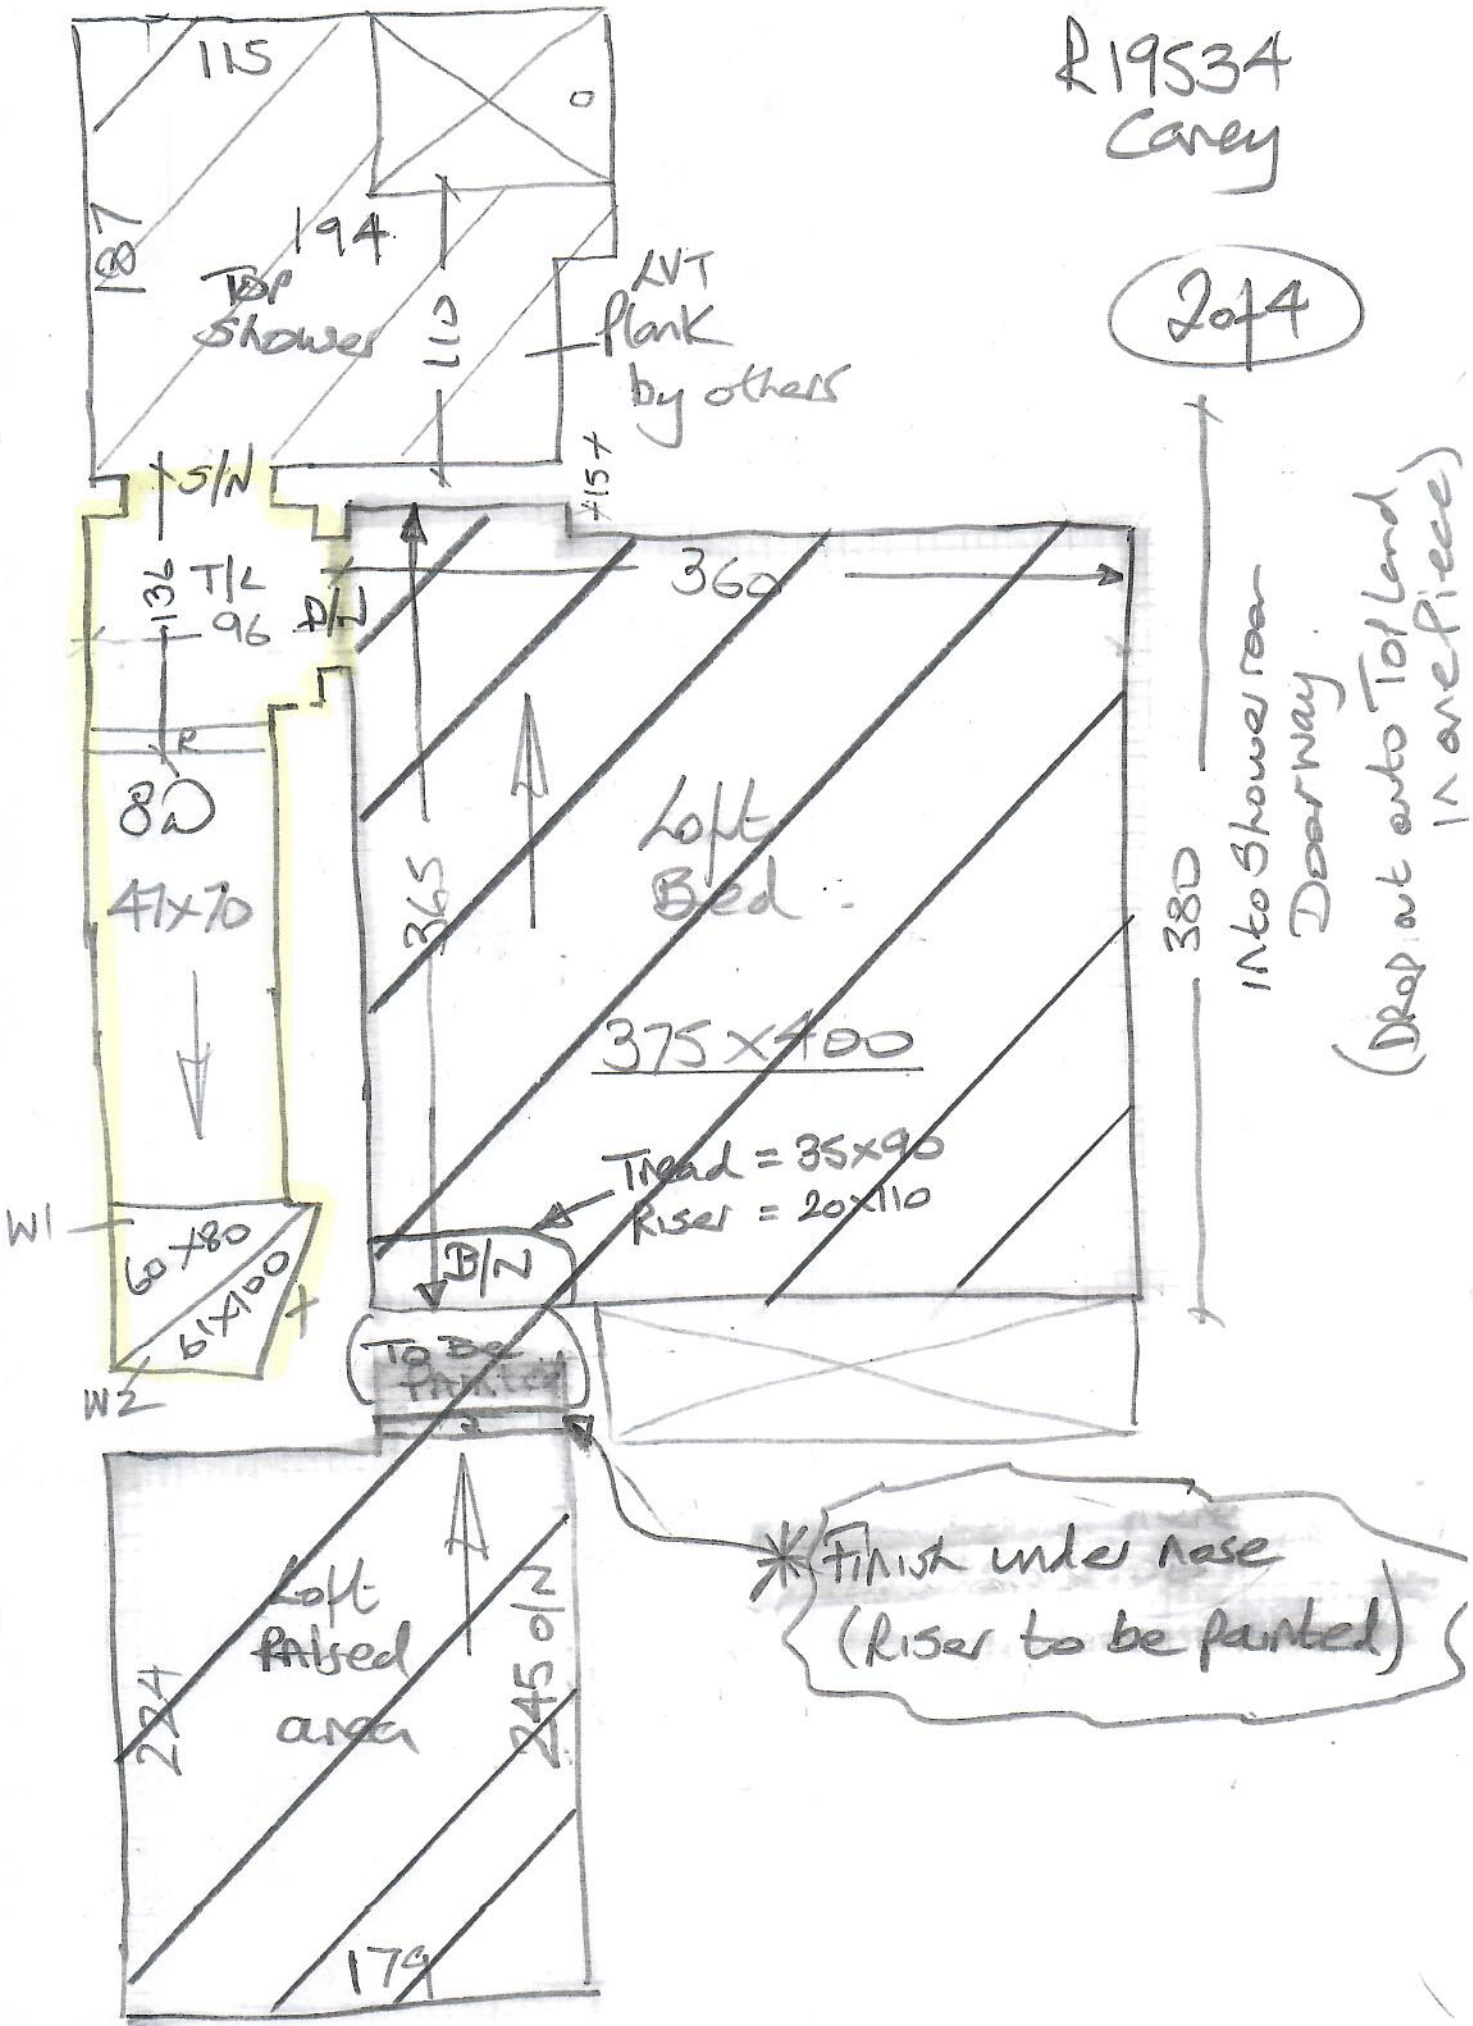 R19534
Carey
2 of 4
115
187
194
Top
Shower
110
LVT
Plank
by others
S/N
+15+
136
T/L
96
D/N
360
R
47x70
365
Loft
Bed
375 x 400
380
Into Shower room
Doorway
(Drop out onto Top Land
in one Piece)
Tread = 35x90
Riser = 20x110
B/N
W1
60x80
61x100
W2
To Be
Painted
Finish under nose
(Riser to be painted)
Loft
Raised
area
224
245 O/N
179